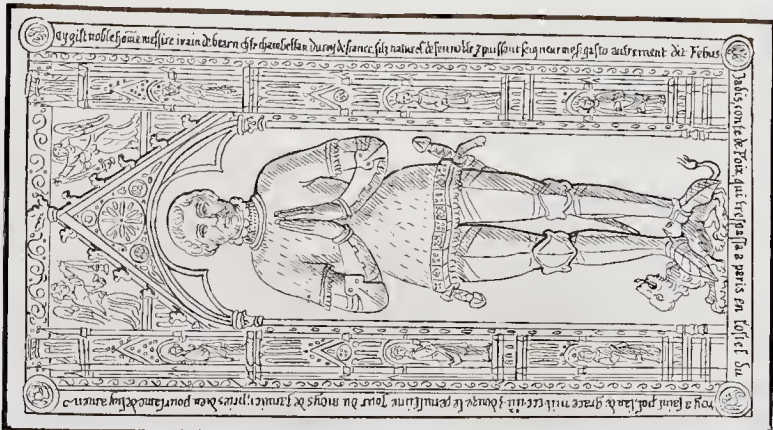 cy gist noble hōme messire ivain de bearn chlr chambellan du roy de france, filz naturel de feu noble z puissant seigneur mess. gasto autrement dit Febus
Jadis conte de Foix, qui trespasa a paris en lostel du
roy a saint pol, lan de grace mil ccc iiii z douze le penultime Jour du moys de Janvier; pries dieu pour lame de luy amen